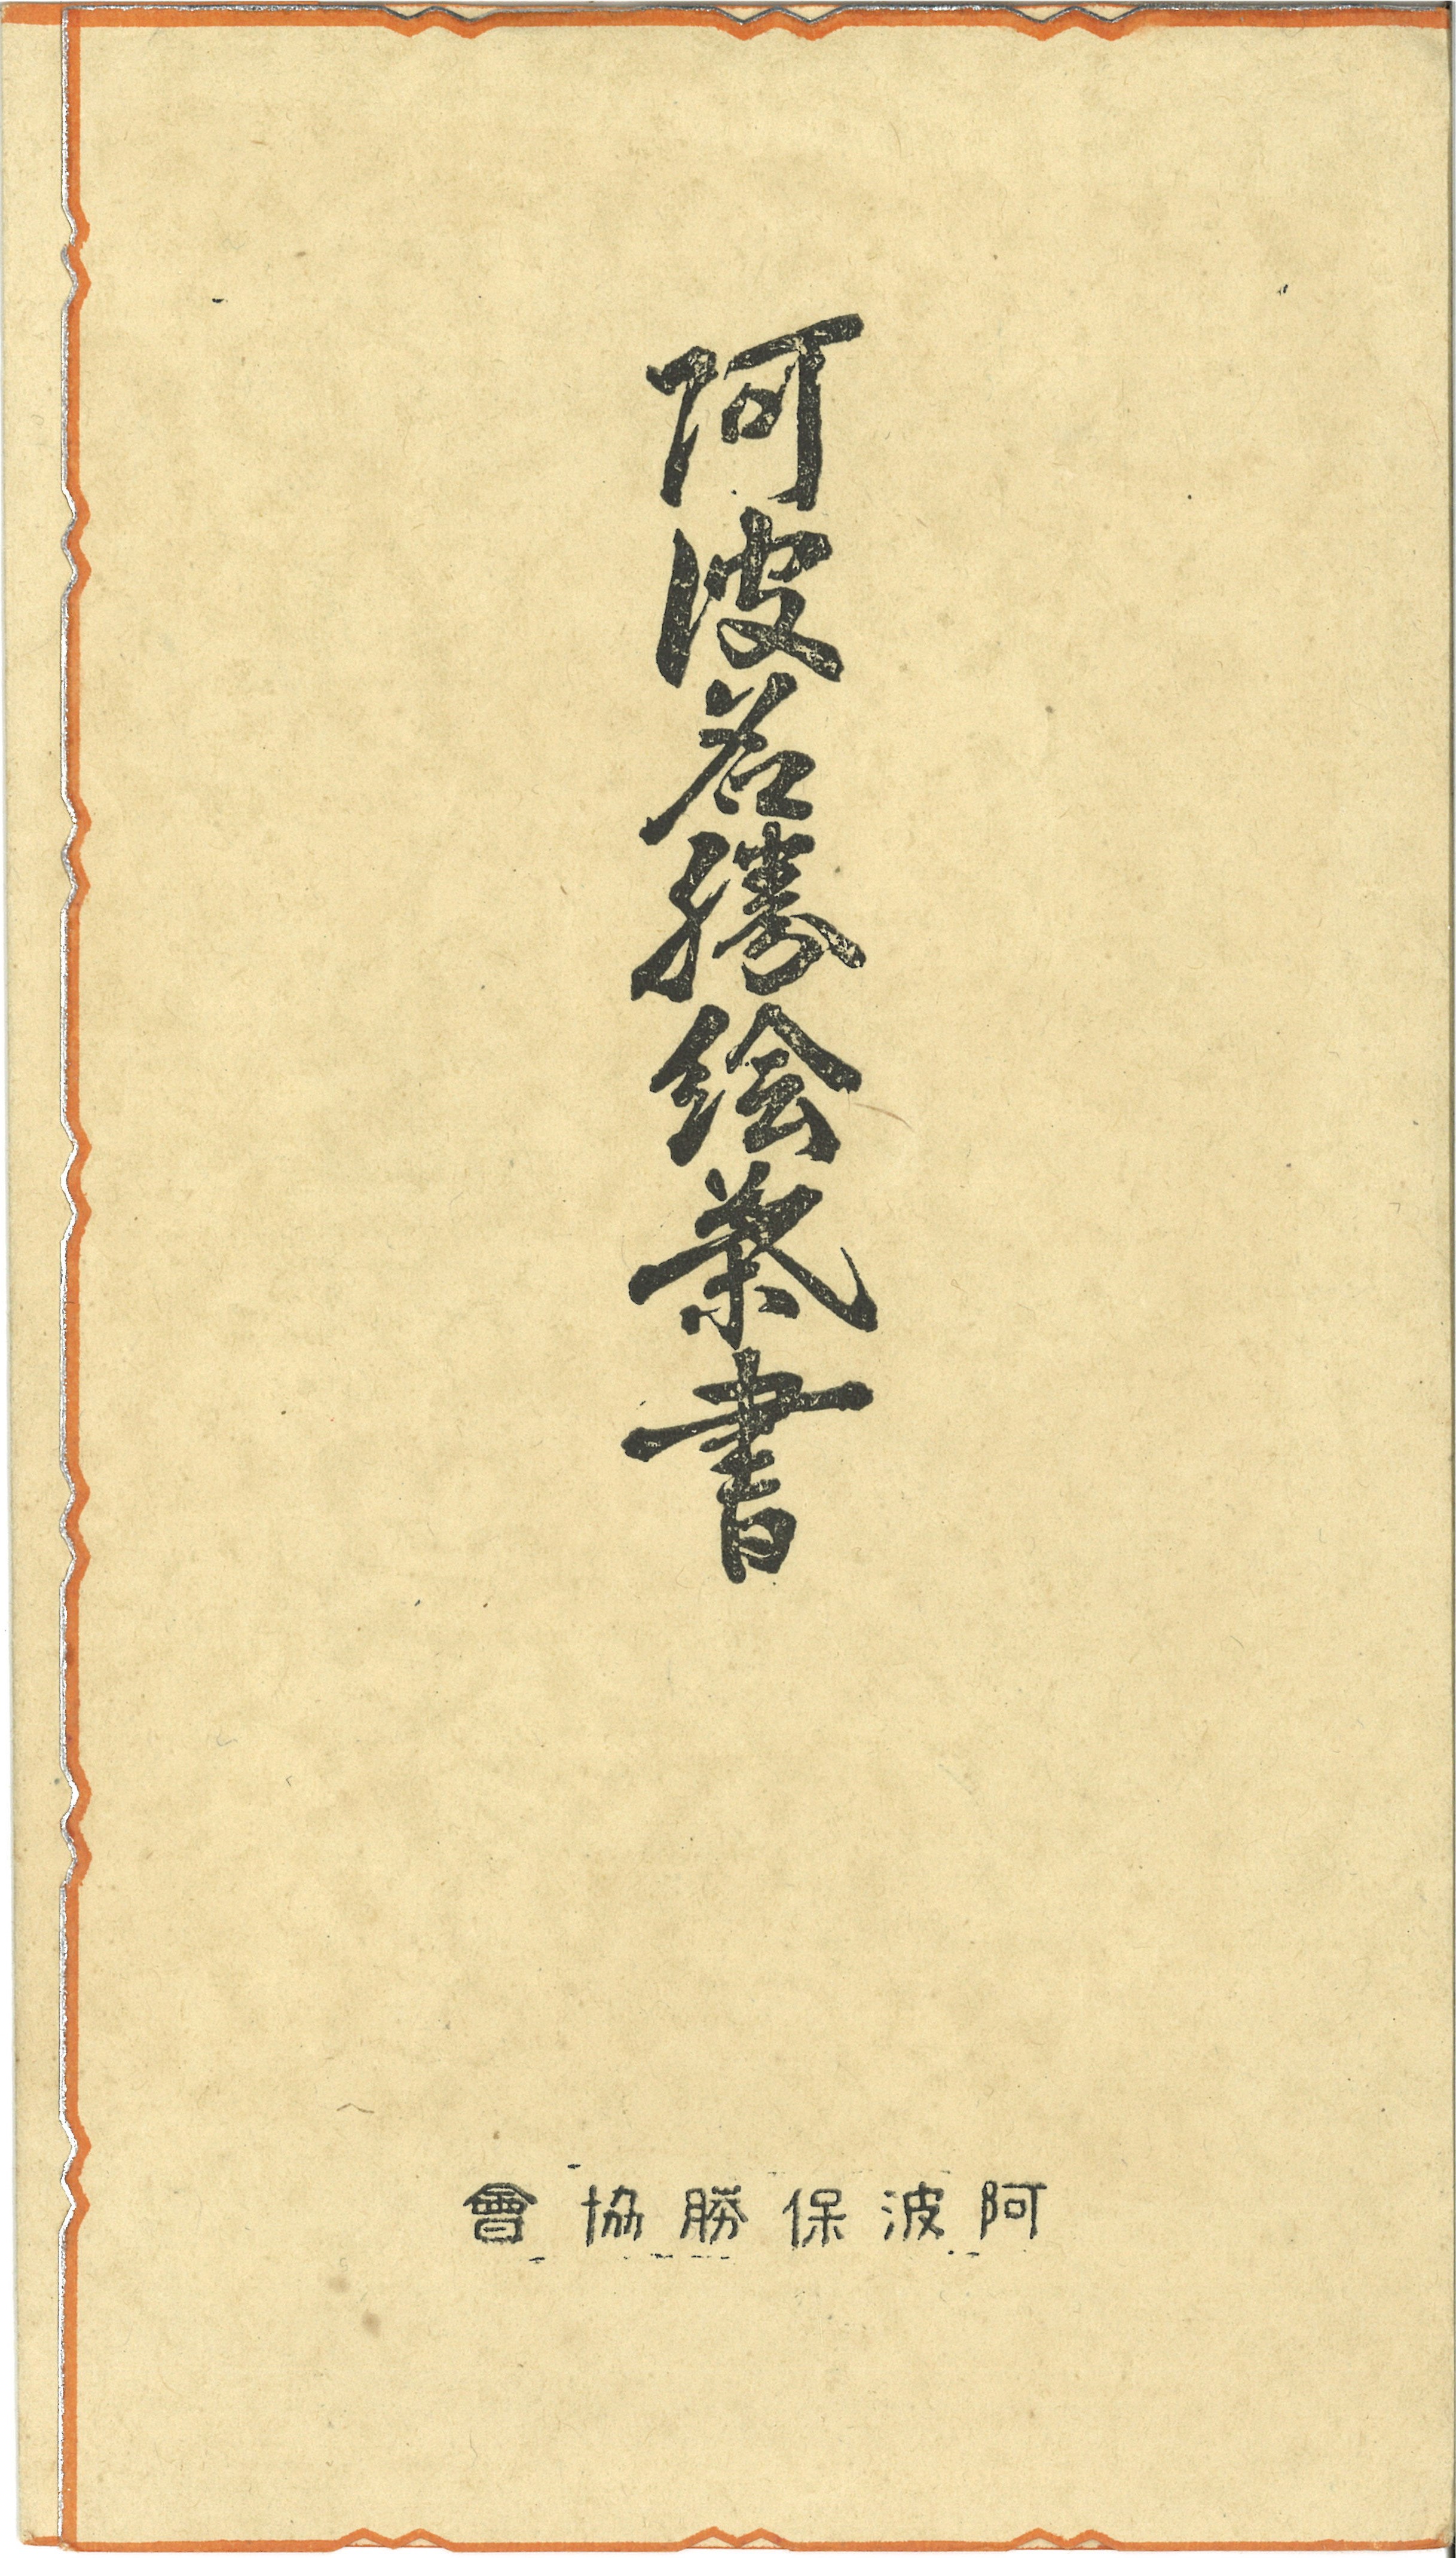 阿波名勝絵葉書
阿波保勝協會